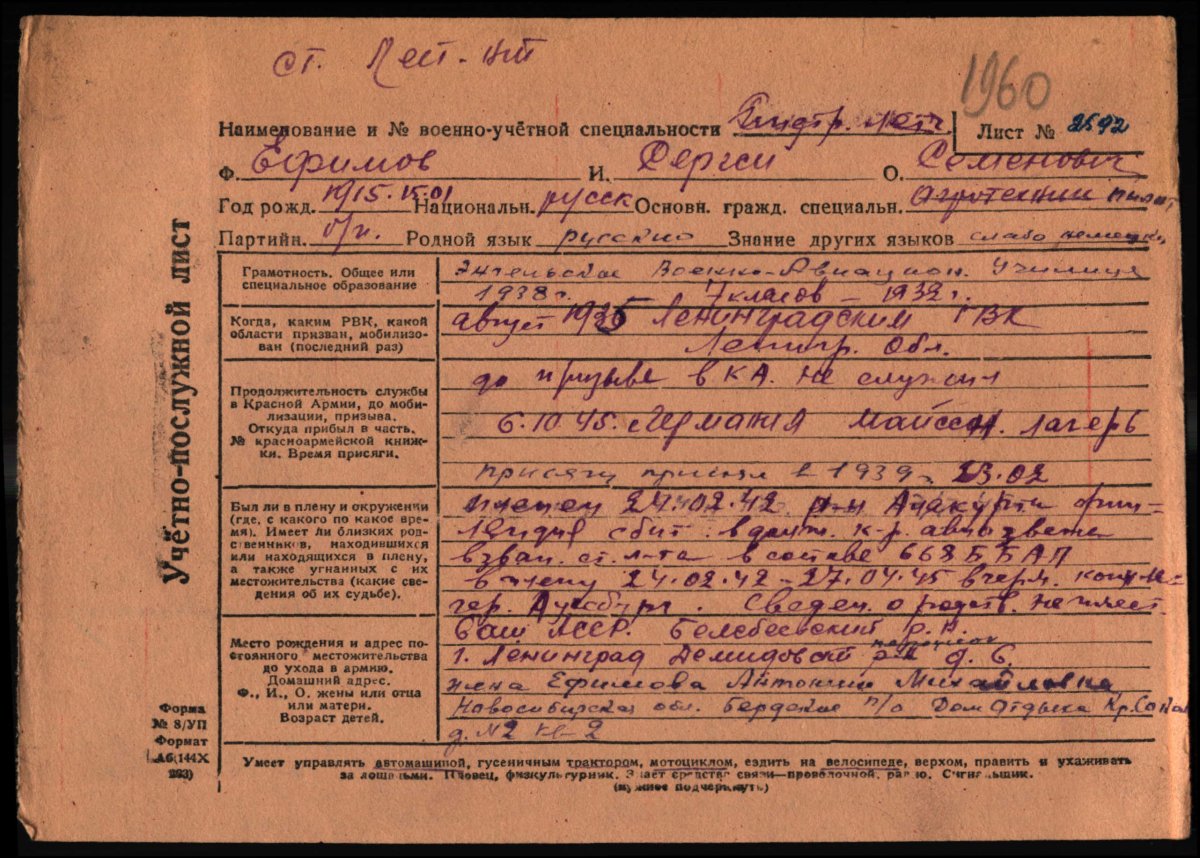 ст. Лейт-нт
1960
Наименование и № военно-учётной специальности летч. Лист № 2592
Ф. Ефимов И. Сергей О. Семенович
Год рожд. 1915. 15.01 Национальн. русск Основн. гражд. специальн. Агротехник пилот
Партийн. б/п. Родной язык русский Знание других языков слабо немецки
УЧЁТНО-ПОСЛУЖНОЙ ЛИСТ
Форма
№ 8/УП
Формат
А6 (144Х
203)
Грамотность. Общее или
специальное образование
Энгельское Военно-Авиацион. Училище
1938 г. 7 класов – 1932 г.
Когда, каким РВК, какой
области призван, мобилизо-
ван (последний раз)
август 1935 Ленинградским ГВК
Ленигр. Обл.
Продолжительность службы
в Красной Армии, до моби-
лизации, призыва.
Откуда прибыл в часть.
№ красноармейской книж-
ки. Время присяги.
до призыва в КА. не служил
6.10.45. Германия Майссен. лагерь
присягу принял в 1939 23.02
Был ли в плену и окружении
(где, с какого по какое вре-
мя). Имеет ли близких род-
ственников, находившихся
или находящихся в плену,
а также угнанных с их
местожительства (какие све-
дения об их судьбе).
пленен 24.02.42 р-н Алакурти фин-
лендия сбит. в должн. к-р. авиазвена
в зван. ст. л-та в составе 668 ББАП
в плену 24.02.42 – 27.04.45 в герм. конц ла-
гер. Аугсбург. Сведен. о родств. не имеет
Место рождения и адрес по-
стоянного местожительства
до ухода в армию.
Домашний адрес.
Ф., И., О. жены или отца
или матери.
Возраст детей.
Баш АССР. Белебеевский р-н
г. Ленинград Демидовой переулок д. 6.
жена Ефимова Антонина Михайловна
Новосибирская обл. Бердское п/о Дом Отдыха Кр. Сокол
д. №2 кв-2
Умеет управлять автомашиной, гусеничным трактором, мотоциклом, ездить на велосипеде, верхом, править и ухаживать
за лошадьми. Пловец, физкультурник. Знает средства связи—проволочной, радио. Сигнальщик.
(нужное подчеркнуть)